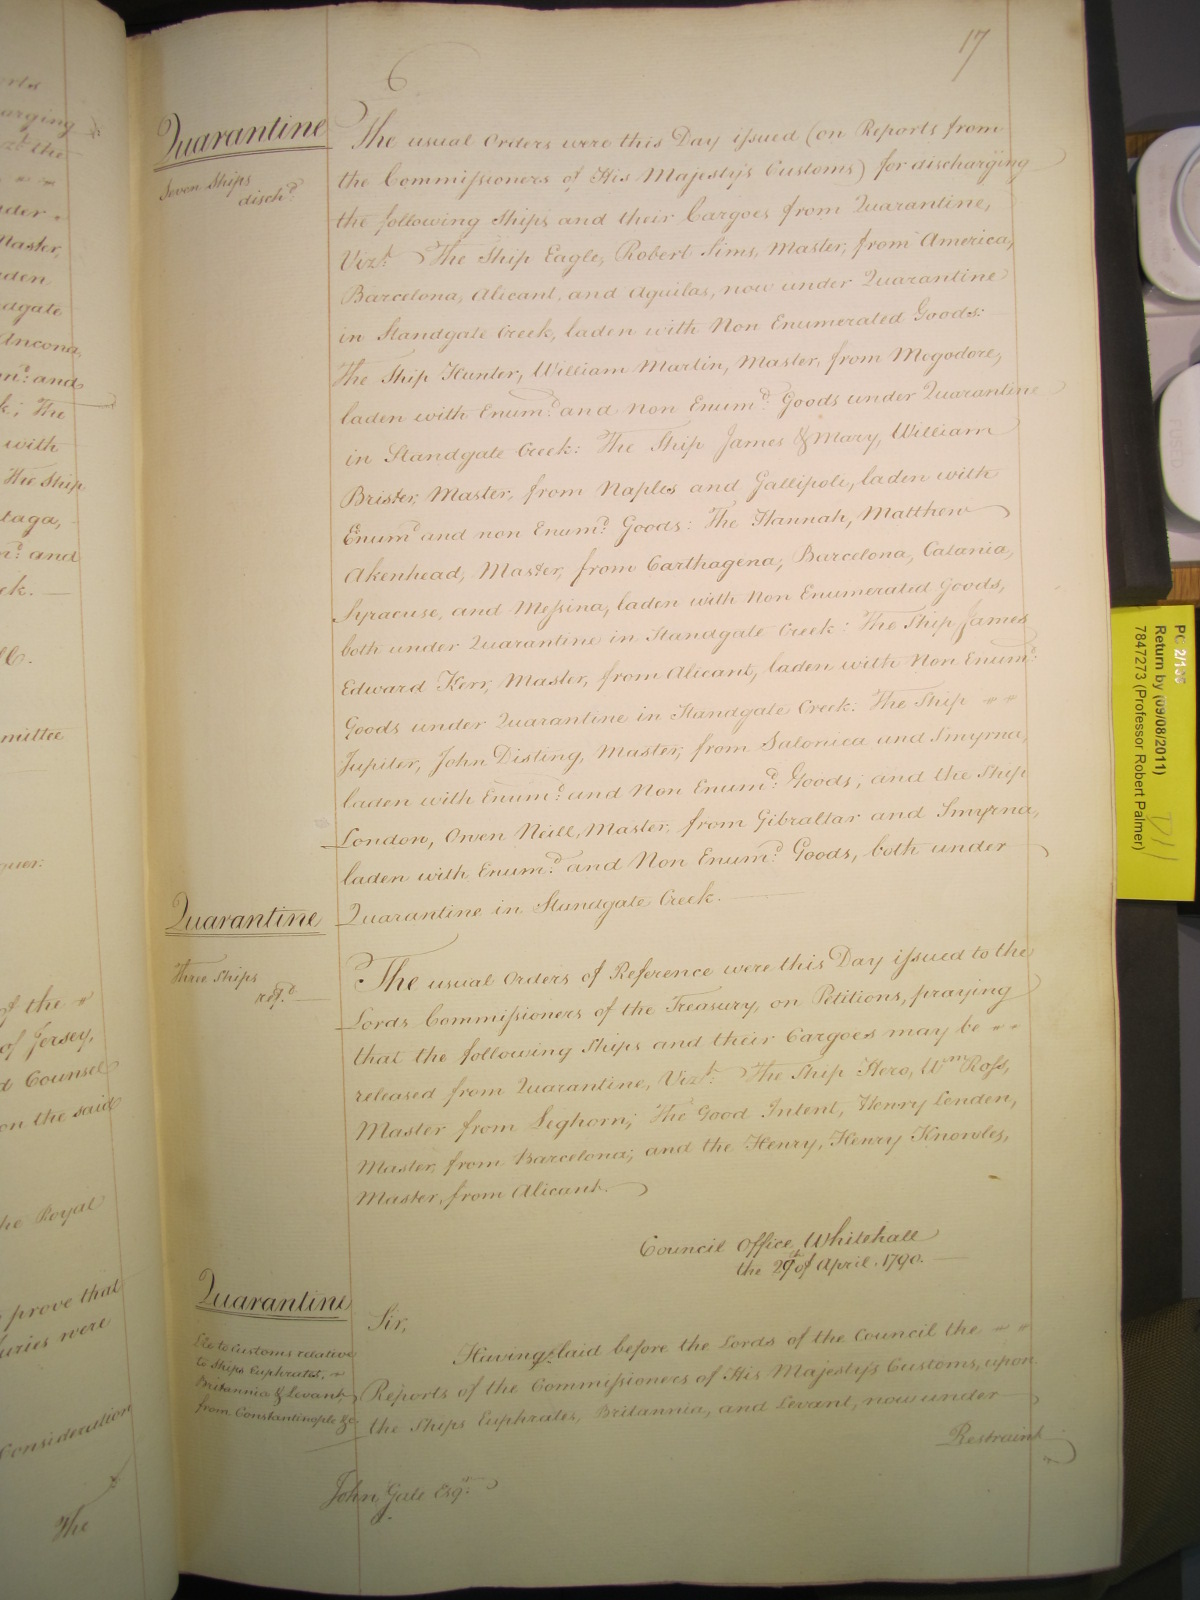 17
Quarantine
Seven Ships
disch.d
The usual Orders were this Day issued (on Reports from
the Commissioners of His Majesty's Customs) for discharging
the following Ships and their Cargoes from Quarantine,
Vizt. The Ship Eagle, Robert Sims, Master, from America,
Barcelona, Alicant, and Aquilas, now under Quarantine
in Standgate Creek, laden with Non Enumerated Goods:
The Ship Hunter, William Martin, Master, from Mogodore,
laden with Enum.d and Non Enum.d Goods under Quarantine
in Standgate Creek: The Ship James & Mary, William
Brister, Master, from Naples and Gallipoli, laden with
Enum.d and non Enum.d Goods: The Hannah, Matthew
Akenhead, Master, from Carthagena, Barcelona, Catania,
Syracuse, and Messina, laden with Non Enumerated Goods,
both under Quarantine in Standgate Creek: The Ship James
Edward Kerr, Master, from Alicant, laden with Non Enum.d
Goods under Quarantine in Standgate Creek: The Ship
Jupiter, John Disting, Master, from Salonica and Smyrna,
laden with Enum.d and Non Enum.d Goods; and the Ship
London, Owen Neill, Master, from Gibraltar and Smyrna,
laden with Enum.d and Non Enum.d Goods, both under
Quarantine in Standgate Creek.
Quarantine
Three Ships
ref.d
The usual Orders of Reference were this Day issued to the
Lords Commissioners of the Treasury, on Petitions, praying
that the following Ships and their Cargoes may be
released from Quarantine, Vizt. The Ship Hero, Wm Ross,
Master from Leghorn; The Good Intent, Henry Lenden,
Master, from Barcelona; and the Henry, Henry Knowles,
Master, from Alicant.
Council Office, Whitehall
the 29th of April. 1790.
Quarantine
Lre to Customs relative
to Ships Euphrates,
Britannia & Levant,
from Constantinople &c.
Sir,
Having laid before the Lords of the Council the
Reports of the Commissioners of His Majesty's Customs, upon
the Ships Euphrates, Britannia, and Levant, now under
Restraint
John Gale Esqr.
arging
the
Master,
aden
dgate
Ancona,
and
The
with
The Ship
and
mittee
of the
of Jersey,
Counsel
on the said
he Royal
prove that
were
Consideration
The
PC 2/135
Return by (09/08/2011)
7847273 (Professor Robert Palmer)